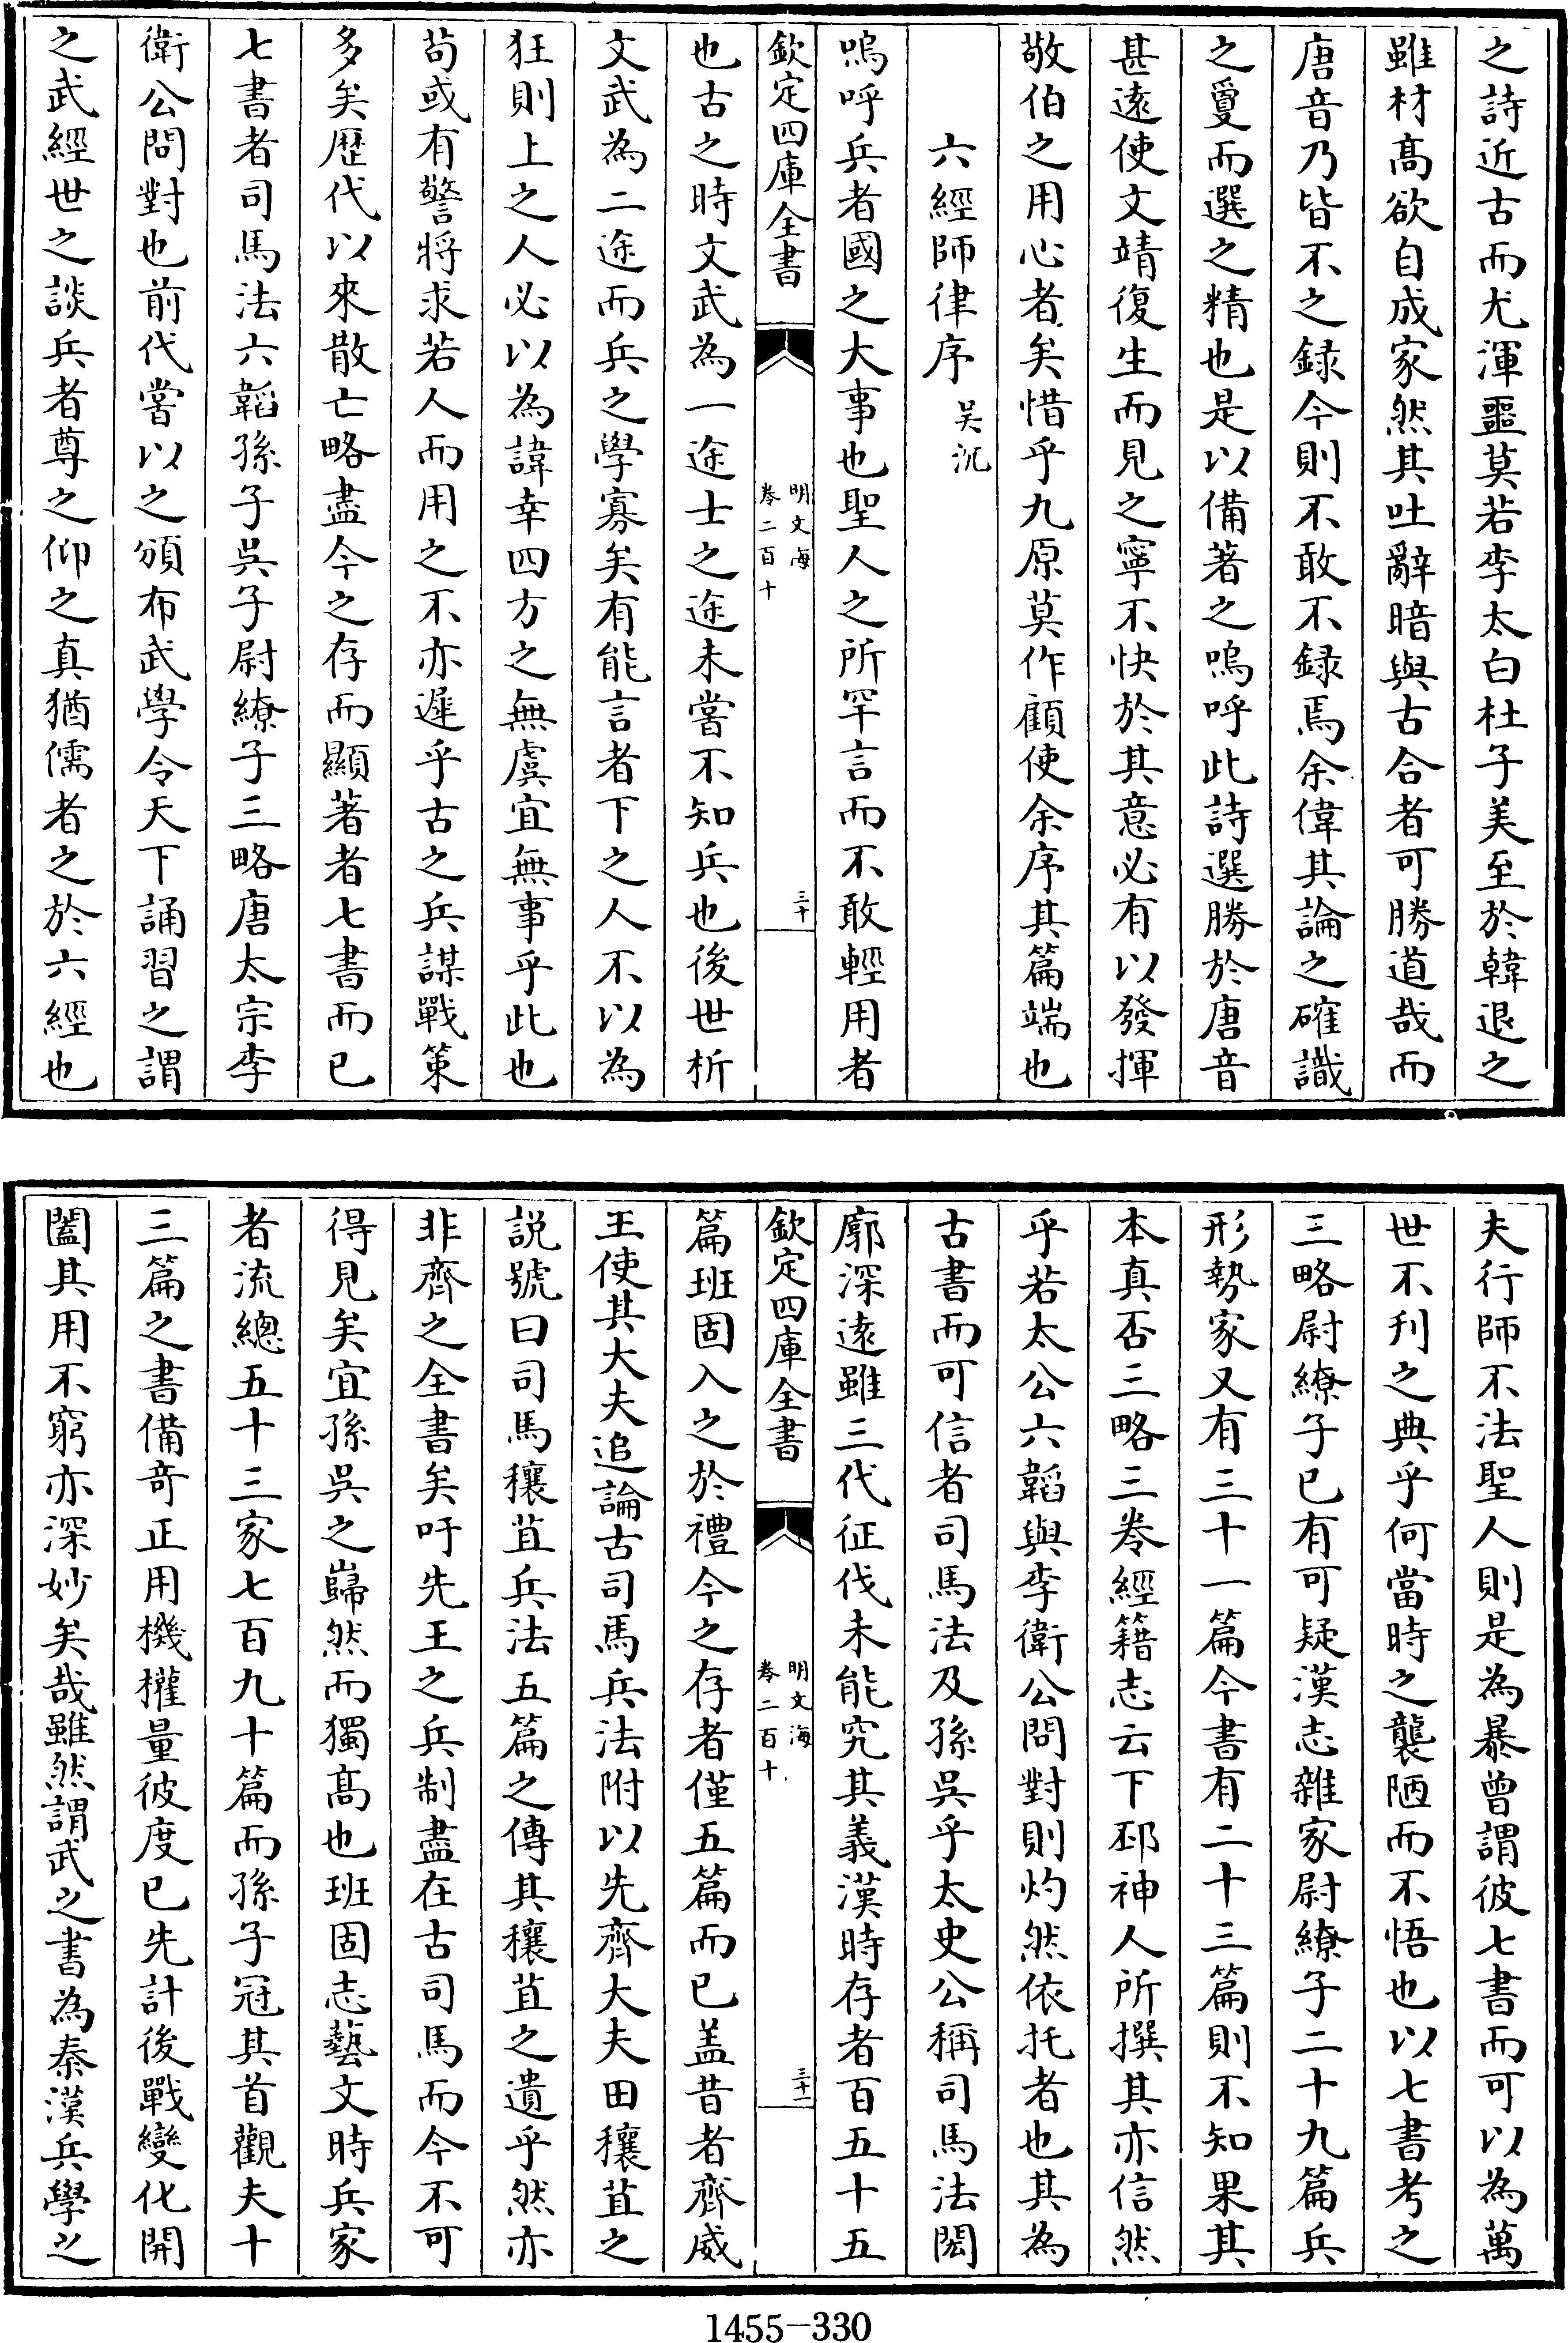 之詩近古而尤渾噩莫若李太白杜子美至於韓退之
雖材髙欲自成家然其吐辭暗與古合者可勝道哉而
唐音乃皆不之録今則不敢不録焉余偉其論之確識
之敻而選之精也是以備著之嗚呼此詩選勝於唐音
甚逺使文靖復生而見之寧不快於其意必有以發揮
敬伯之用心者矣惜乎九原莫作顧使余序其篇端也
六經師律序 吴沉
嗚呼兵者國之大事也聖人之所罕言而不敢輕用者
欽定四庫全書
明文海
卷二百十
三十
也古之時文武為一途士之途未嘗不知兵也後世析
文武為二途而兵之學寡矣有能言者下之人不以為
狂則上之人必以為諱幸四方之無虞宜無事乎此也
苟或有警將求若人而用之不亦遲乎古之兵謀戰策
多矣歴代以來散亡略盡今之存而顯著者七書而已
七書者司馬法六韜孫子吳子尉繚子三略唐太宗李
衛公問對也前代嘗以之頒布武學令天下誦習之謂
之武經世之談兵者尊之仰之真猶儒者之於六經也
夫行師不法聖人則是為暴曾謂彼七書而可以為萬
世不刋之典乎何當時之襲陋而不悟也以七書考之
三略尉繚子已有可疑漢志雜家尉繚子二十九篇兵
形勢家又有三十一篇今書有二十三篇則不知果其
本真否三略三卷經籍志云下邳神人所撰其亦信然
乎若太公六韜與李衛公問對則灼然依托者也其為
古書而可信者司馬法及孫吳乎太史公稱司馬法閎
廓深逺雖三代征伐未能究其義漢時存者百五十五
欽定四庫全書
明文海
卷二百十
三十一
篇班固入之於禮今之存者僅五篇而已盖昔者齊威
王使其大夫追論古司馬兵法附以先齊大夫田穰苴之
説號曰司馬穰苴兵法五篇之傳其穰苴之遺乎然亦
非齊之全書矣吁先王之兵制盡在古司馬而今不可
得見矣宜孫吳之巋然而獨髙也班固志藝文時兵家
者流總五十三家七百九十篇而孫子冠其首觀夫十
三篇之書備竒正用機權量彼度已先計後戰變化開
闔其用不窮亦深妙矣哉雖然謂武之書為秦漢兵學之
1455-330